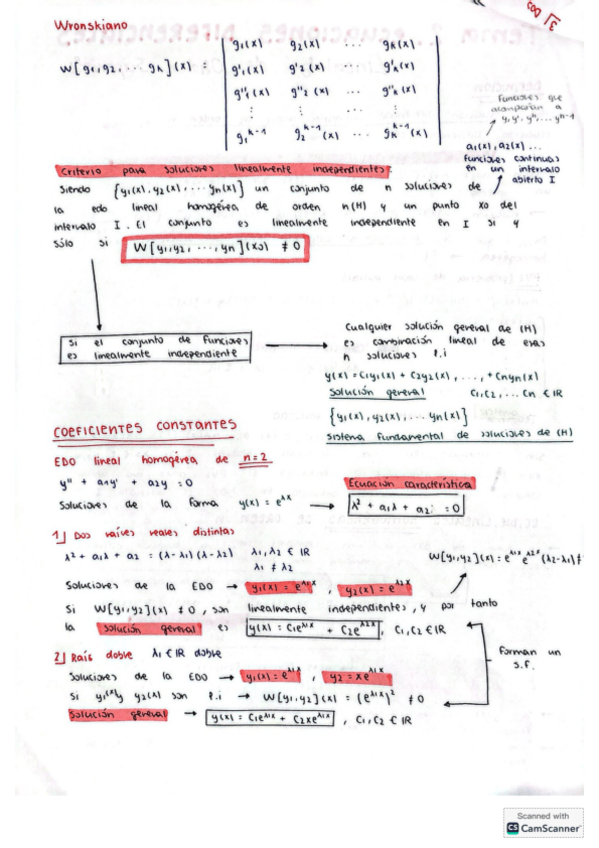 Wronskiano
W[g₁,g₂,... gₖ](x) = | g₁(x) g₂(x) ... gₖ(x) |
g'₁(x) g'₂(x) ... g'ₖ(x)
g''₁(x) g''₂(x) ... g''ₖ(x)
⋮ ⋮ ⋮
g₁ᵏ⁻¹ g₂ᵏ⁻¹(x) ... gₖᵏ⁻¹(x)
Funciones que
acompañan a
y, y', y'', ... yⁿ⁻¹
a₁(x), a₂(x) ...
funciones continuas
en un intervalo
abierto I
Criterio para soluciones linealmente independientes:
Siendo {y₁(x), y₂(x), ... yn(x)} un conjunto de n soluciones de
la edo lineal homogénea de orden n (H) y un punto x₀ del
intervalo I. El conjunto es linealmente independiente en I si y
sólo si W[y₁,y₂, ..., yn](x₀) ≠ 0
Si el conjunto de funciones
es linealmente independiente
Cualquier solución general de (H)
es combinación lineal de esas
n soluciones l.i
y(x) = C₁y₁(x) + C₂y₂(x), ..., + Cnyn(x)
Solución general C₁,C₂, ... Cn ∈ IR
{y₁(x), y₂(x), ... yn(x)}
Sistema Fundamental de soluciones de (H)
COEFICIENTES CONSTANTES
EDO lineal homogénea de n=2
y'' + a₁y' + a₂y = 0
Soluciones de la forma y(x) = e^λx
Ecuación característica
λ² + a₁λ + a₂ = 0
1] Dos raíces reales distintas
λ² + a₁λ + a₂ = (λ-λ₁)(λ-λ₂) λ₁, λ₂ ∈ IR
λ₁ ≠ λ₂
W[y₁,y₂](x) = e^λ₁x e^λ₂x (λ₂-λ₁) ≠
Soluciones de la EDO → y₁(x) = e^λ₁x , y₂(x) = e^λ₂x
Si W[y₁,y₂](x) ≠ 0, son linealmente independientes, y por tanto
la solución general es y(x) = C₁e^λ₁x + C₂e^λ₂x , C₁,C₂ ∈ IR
Forman un
s.f.
2] Raíz doble λ₁ ∈ IR doble
Soluciones de la EDO → y₁(x) = e^λ₁x , y₂ = xe^λ₁x
Si y₁(x) y y₂(x) son l.i → W[y₁,y₂](x) = (e^λ₁x)² ≠ 0
Solución general → y(x) = C₁e^λ₁x + C₂xe^λ₁x , C₁,C₂ ∈ IR
Scanned with
CS CamScanner